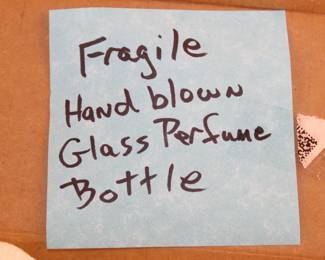 Fragile
Hand blown
Glass Perfume
Bottle